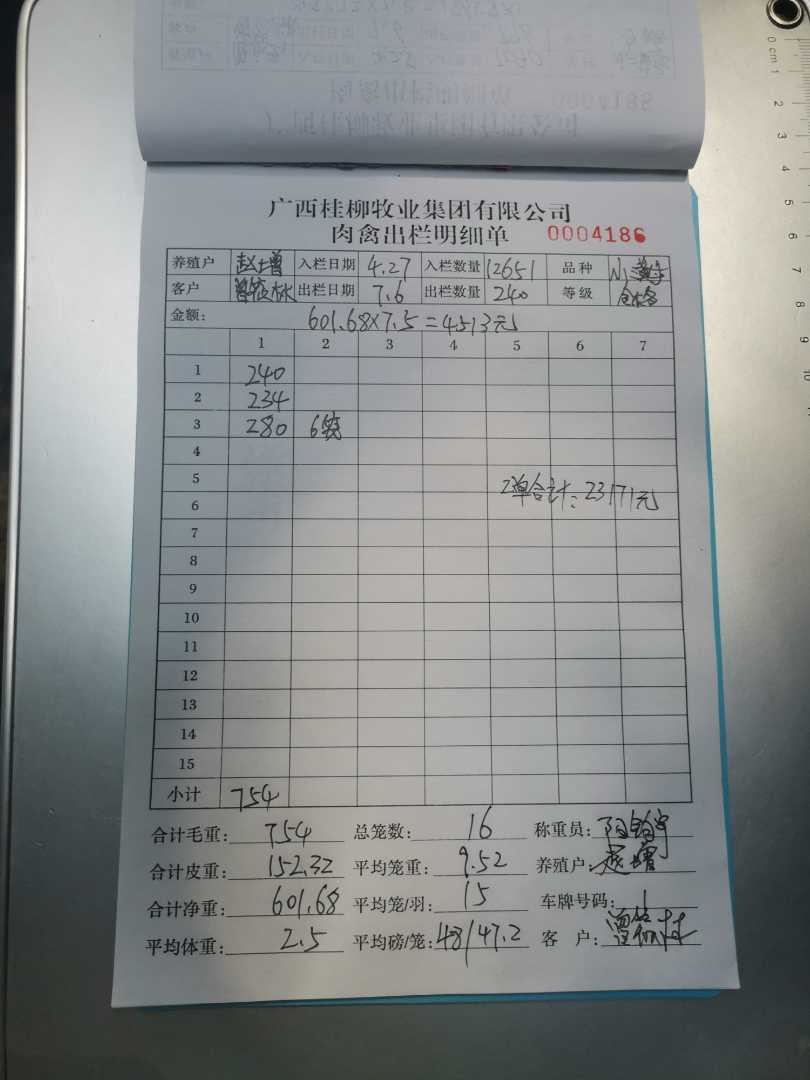 广西桂柳牧业集团有限公司
肉禽出栏明细单 0004186
养殖户 赵增 入栏日期 4.27 入栏数量 12651 品种
客户 出栏日期 7.6 出栏数量 240 等级 合格
金额: 601.68×7.5=4513元
1 2 3 4 5 6 7
1 240
2 234
3 280 6笼
4
5 2单合计:23171元
6
7
8
9
10
11
12
13
14
15
小计 754
合计毛重: 754 总笼数: 16 称重员:
合计皮重: 152.32 平均笼重: 9.52 养殖户: 赵增
合计净重: 601.68 平均笼/羽: 15 车牌号码: 1
平均体重: 2.5 平均磅/笼: 48/47.2 客 户:
0 cm 1
2
3
4
5
6
7
8
9
10